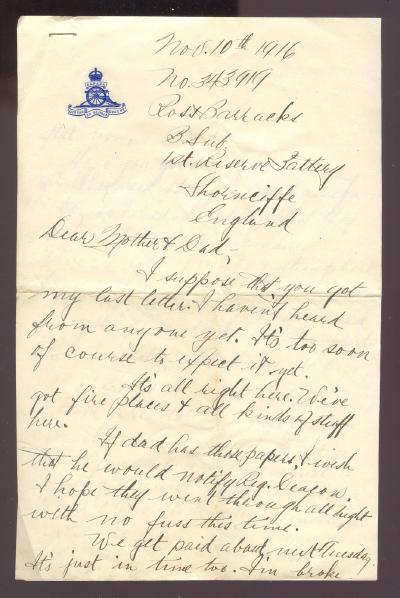 Nov. 10th 1916
No. 343919
Ross Barracks
B. Sub.
1st. Reserve Battery
Shorncliffe
England
Dear Mother & Dad,
I suppose that you got
my last letter. I haven't heard
from anyone yet. It's too soon
of course to expect it yet.
It's all right here. We've
got fire places & all kinds of stuff
here.
If dad has those papers, I wish
that he would notify Reg. Deacon.
I hope they went through all right
with no fuss this time.
We get paid about next Tuesday.
It's just in time too. I'm broke